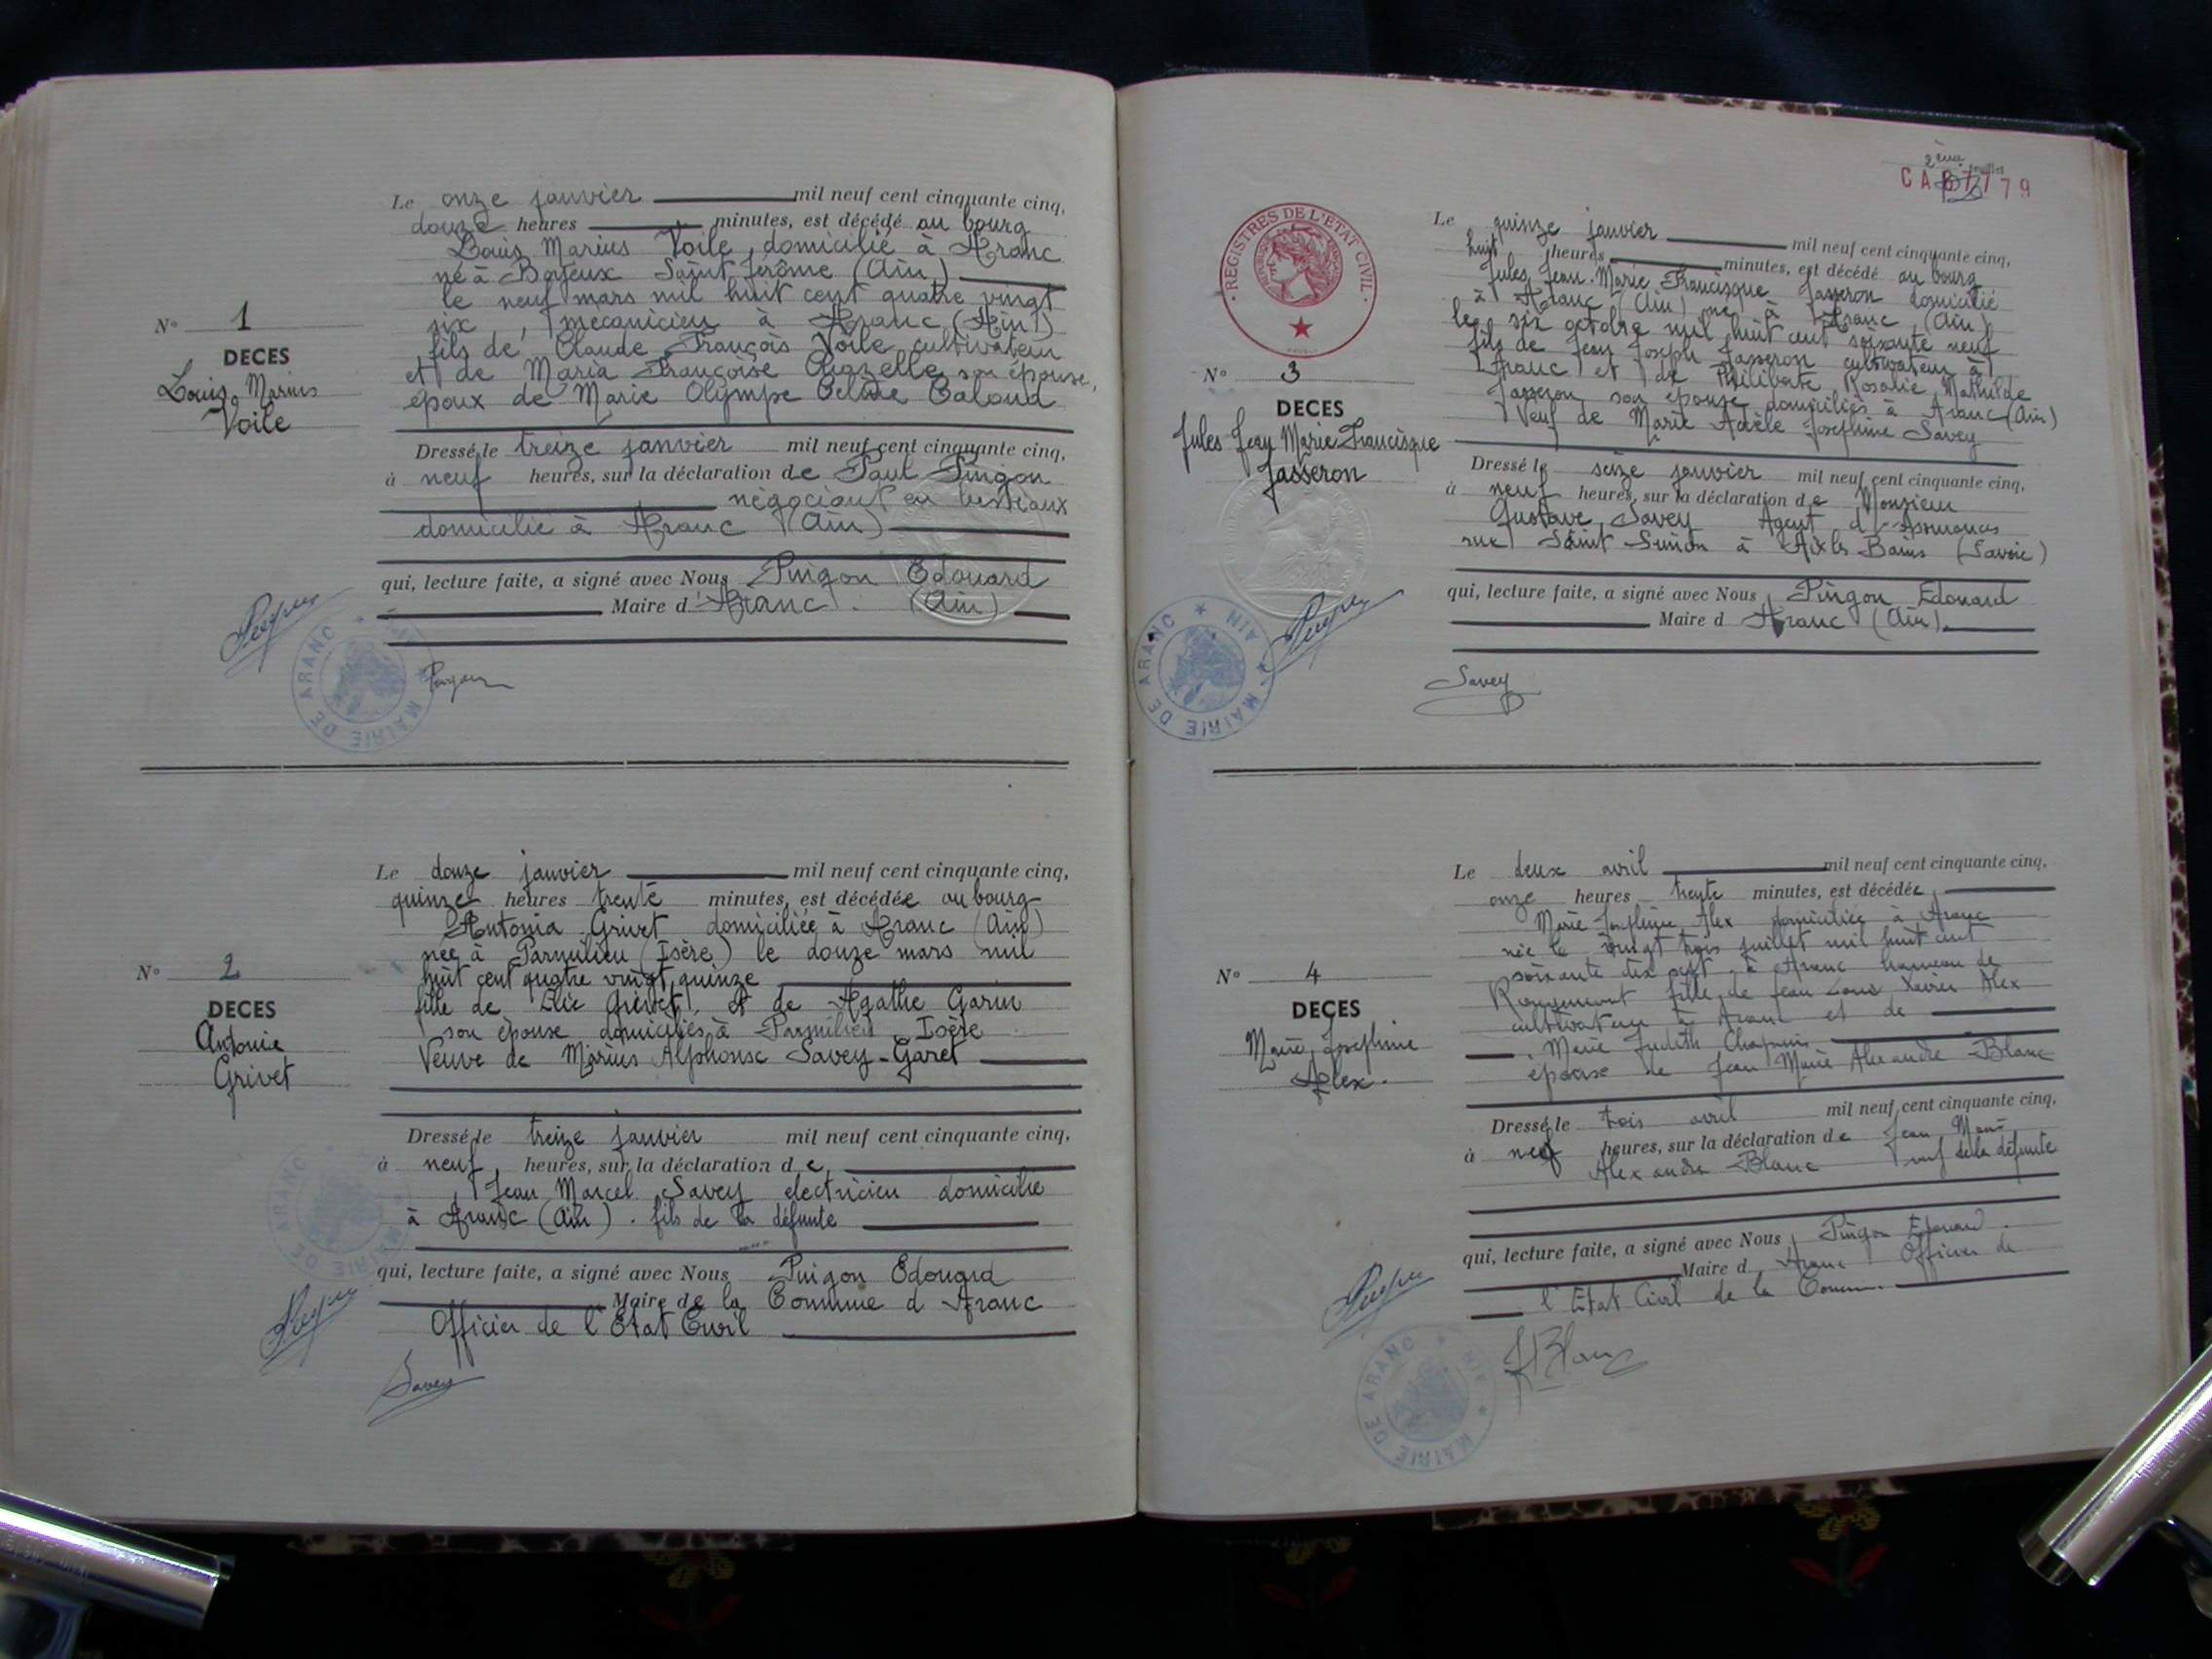 Le onze janvier mil neuf cent cinquante cinq,
douze heures minutes, est décédé au bourg
Louis Marius Voile, domicilié à Aranc
né à Boyeux Saint Jérôme (Ain)
le neuf mars mil huit cent quatre vingt
six, mécanicien à Aranc (Ain)
fils de Claude François Voile cultivateur
et de Maria Françoise son épouse,
époux de Marie Olympe
N° 1
DECES
Louis, Marius
Voile
Dressé le treize janvier mil neuf cent cinquante cinq,
à neuf heures, sur la déclaration de Paul Pingon
négociant en bestiaux
domicilié à Aranc (Ain)
qui, lecture faite, a signé avec Nous Pingon Edouard
Maire d'Aranc. (Ain)
MAIRIE DE ARANC
Pingon
Le douze janvier mil neuf cent cinquante cinq,
quinze heures trente minutes, est décédée au bourg
Antonia Grivet domiciliée à Aranc (Ain)
née à Parmilieu (Isère) le douze mars mil
huit cent quatre vingt quinze
fille de Elie Grivet, et de Agathe Garin
son épouse domiciliés à Parmilieu Isère
Veuve de Marius Alphonse Savey-Garet
N° 2
DECES
Antonia
Grivet
Dressé le treize janvier mil neuf cent cinquante cinq,
à neuf, heures, sur la déclaration de
Jean Marcel Savey electricien domicilié
à Aranc (Ain). fils de la défunte
qui, lecture faite, a signé avec Nous Pingon Edouard
Maire de la Commune d Aranc
Officier de l'Etat Civil
MAIRIE DE ARANC
Savey
2ème feuillet
CA 79
REGISTRES DE L'ÉTAT CIVIL
Le quinze janvier mil neuf cent cinquante cinq,
huit heures minutes, est décédé au bourg
Jules Jean Marie Francisque Jasseron domicilié
à Aranc (Ain) né à Aranc (Ain)
le six octobre mil huit cent soixante neuf
fils de Jean Joseph Jasseron cultivateur à
Aranc et de Philiberte Rosalie Mathilde
Jasseron son épouse domiciliés à Aranc (Ain)
Veuf de Marie Adèle Joséphine Savey
N° 3
DECES
Jules Jean Marie Francisque
Jasseron
Dressé le seize janvier mil neuf cent cinquante cinq,
à neuf heures, sur la déclaration de Monsieur
Gustave Savey Agent d'Assurances
rue Saint Simon à Aix les Bains (Savoie)
qui, lecture faite, a signé avec Nous, Pingon Edouard
Maire d Aranc (Ain).
MAIRIE DE ARANC ★ AIN ★
Savey
Le deux avril mil neuf cent cinquante cinq,
onze heures trente minutes, est décédée,
Marie Joséphine Alex domiciliée à Aranc
née le vingt trois juillet mil huit cent
soixante dix sept à Aranc hameau de
Rougemont fille de Jean Louis Xavier Alex
cultivateur à Aranc et de
Marie Judith Chapuis
épouse de Jean Marie Alexandre Blanc
N° 4
DECES
Marie, Joséphine
Alex.
Dressé le trois avril mil neuf cent cinquante cinq,
à neuf heures, sur la déclaration de Jean Marie
Alexandre Blanc veuf de la défunte
qui, lecture faite, a signé avec Nous, Pingon Edouard.
Maire d Aranc Officier de
l'Etat Civil de la Commune.
MAIRIE DE ARANC
Blanc